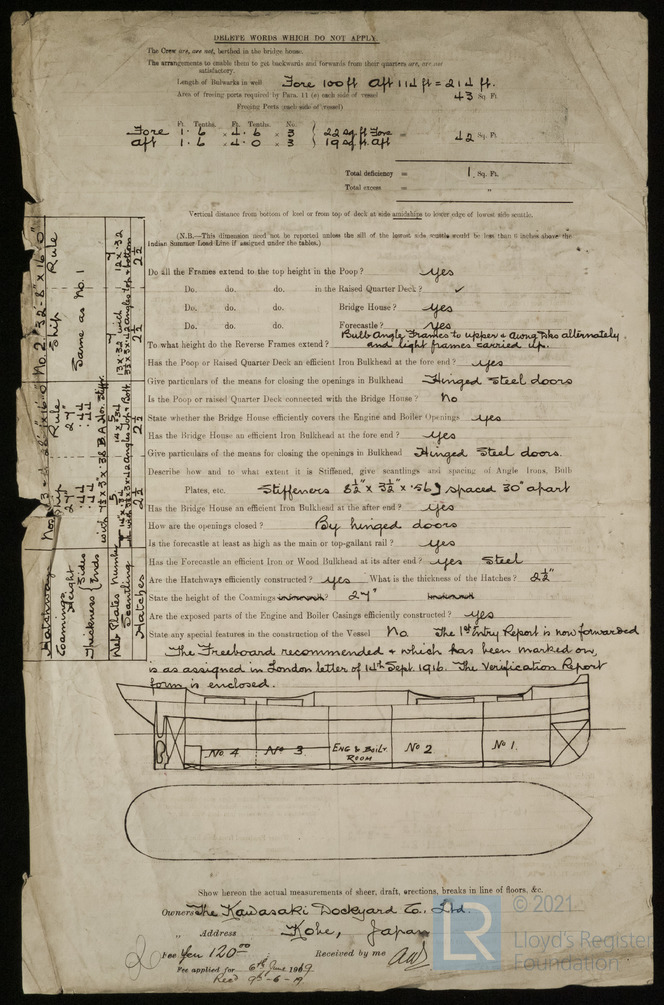 DELETE WORDS WHICH DO NOT APPLY
The Crew are, are not, berthed in the bridge house.
The arrangements to enable them to get backwards and forwards from their quarters are, are not
satisfactory.
Length of Bulwarks in well Fore 100ft Aft 114 ft = 214 ft.
Area of freeing ports required by Para. 11 (e) each side of vessel 43 Sq. Ft.
Freeing Ports (each side of vessel)
Ft. Tenths. Ft. Tenths. No.
Fore 1.6 × 4.6 × 3 } 22 sq ft Fore = 42 Sq. Ft.
Aft 1.6 × 4.0 × 3 } 19 sq ft Aft
Total deficiency = 1 Sq. Ft.
Total excess = "
Vertical distance from bottom of keel or from top of deck at side amidships to lower edge of lowest side scuttle.
(N.B.—This dimension need not be reported unless the sill of the lowest side scuttle would be less than 6 inches above the
Indian Summer Load Line if assigned under the tables.)
Do all the Frames extend to the top height in the Poop? yes
Do. do. do. in the Raised Quarter Deck? ✓
Do. do. do. Bridge House? yes
Do. do. do. Forecastle? yes
Bulb Angle Frames to upper & awng Dks alternately
To what height do the Reverse Frames extend? and light frames carried up.
Has the Poop or Raised Quarter Deck an efficient Iron Bulkhead at the fore end? yes
Give particulars of the means for closing the openings in Bulkhead Hinged Steel doors
Is the Poop or Raised Quarter Deck connected with the Bridge House? No
State whether the Bridge House efficiently covers the Engine and Boiler Openings yes
Has the Bridge House an efficient Iron Bulkhead at the fore end? yes
Give particulars of the means for closing the openings in Bulkhead Hinged Steel doors.
Describe how and to what extent it is Stiffened, give scantlings and spacing of Angle Irons, Bulb
Plates, etc. Stiffeners 8½" × 3½" × .56 spaced 30" apart
Has the Bridge House an efficient Iron Bulkhead at the after end? yes
How are the openings closed? By hinged doors
Is the forecastle at least as high as the main or top-gallant rail? yes
Has the Forecastle an efficient Iron or Wood Bulkhead at its after end? yes Steel
Are the Hatchways efficiently constructed? yes What is the thickness of the Hatches? 2½"
State the height of the Coamings 27"
Are the exposed parts of the Engine and Boiler Casings efficiently constructed? yes
State any special features in the construction of the Vessel No. The 1st Entry Report is now forwarded
The Freeboard recommended & which has been marked on,
is as assigned in London letter of 14th Sept. 1916. The Verification Report
form is enclosed.
Hatchway Nos No. 2 = 32'-8" × 16'-0"
Coamings Height 27" 27"
Ship Rule Ship Rule
Thickness { Sides .44 .44
Ends .44 .44
Same as No. 1
Web Plates Number
Scantling
Hatches 2½ 2½ 2½ 2½
No 4 No 3 ENG & BOILR. ROOM No 2 No 1.
Show hereon the actual measurements of sheer, draft, erections, breaks in line of floors, &c.
Owners The Kawasaki Dockyard Co., Ltd.
" Address Kobe, Japan
Fee Yen 120.00 Received by me
Fee applied for 6th June 1919
Recd 9th-6-19
LR
© 2021
Lloyd's Register
Foundation